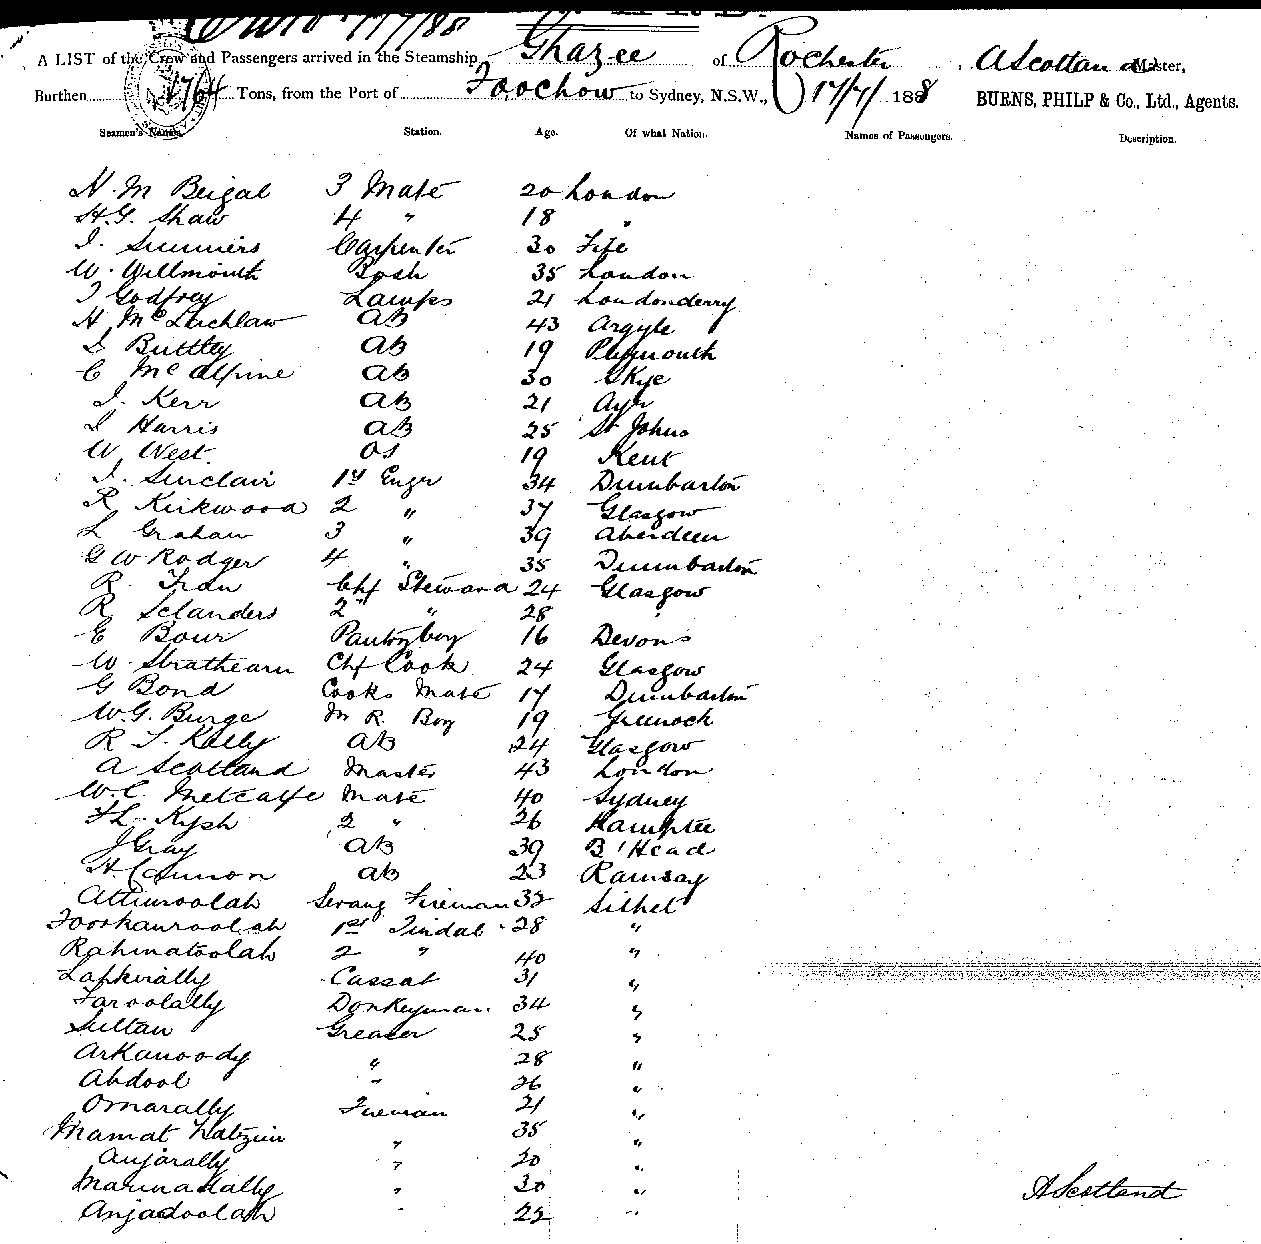 17/7/88
A LIST of the Crew and Passengers arrived in the Steamship Ghazee of Rochester, A Scotland Master,
Burthen 1764 Tons, from the Port of Foochow to Sydney, N.S.W., 17/7/ 1888 BURNS, PHILP & Co., Ltd., Agents.
Seamen's Names. Station. Age. Of what Nation. Names of Passengers. Description.
N. M Beigal 3 Mate 20 London
H.G. Shaw 4 " 18 "
J. Summers Carpenter 30 Fife
W. Willmouth Bosn 35 London
J Godfrey Lamps 21 Londonderry
H McLachlaw AB 43 Argyle
J Buttley AB 19 Plymouth
C McAlpine AB 30 Skye
J. Kerr AB 21 Ayr
J Harris AB 25 St Johns
W West. OS 19 Kent
J. Sinclair 1st Engr 34 Dumbarton
R Kirkwood 2 " 37 Glasgow
L Graham 3 " 39 Aberdeen
G W Rodger 4 " 35 Dumbarton
R. Fran Chf Steward 24 Glasgow
R Selanders 2 " 28 "
E Bour Pantryboy 16 Devons
W. Strathearn Chf Cook 24 Glasgow
G Bond Cooks Mate 17 Dumbarton
W.G. Burge M R. Boy 19 Greenock
R J. Kelly AB 24 Glasgow
A Scotland Master 43 London
W.C. Metcalfe Mate 40 Sydney
F L. Kysh 2 " 26 Kamptee
J Gray AB 39 B'Head
H. Cannon AB 23 Ramsay
Attimoolah Serang Fireman 32 Silhet
Foorkanroolah 1st Tindal 28 "
Rahmatoolah 2 " 40 "
Lapkirally Cassat 31 "
Faroolally Donkeyman 34 "
Sultan Greaser 25 "
Arkanoody " 28 "
Abdool " 26 "
Omarally Fireman 21 "
Mamat " 35 "
Anjarally " 20 "
Marinadally " 30 "
Anjadoolah " 22 "
A Scotland